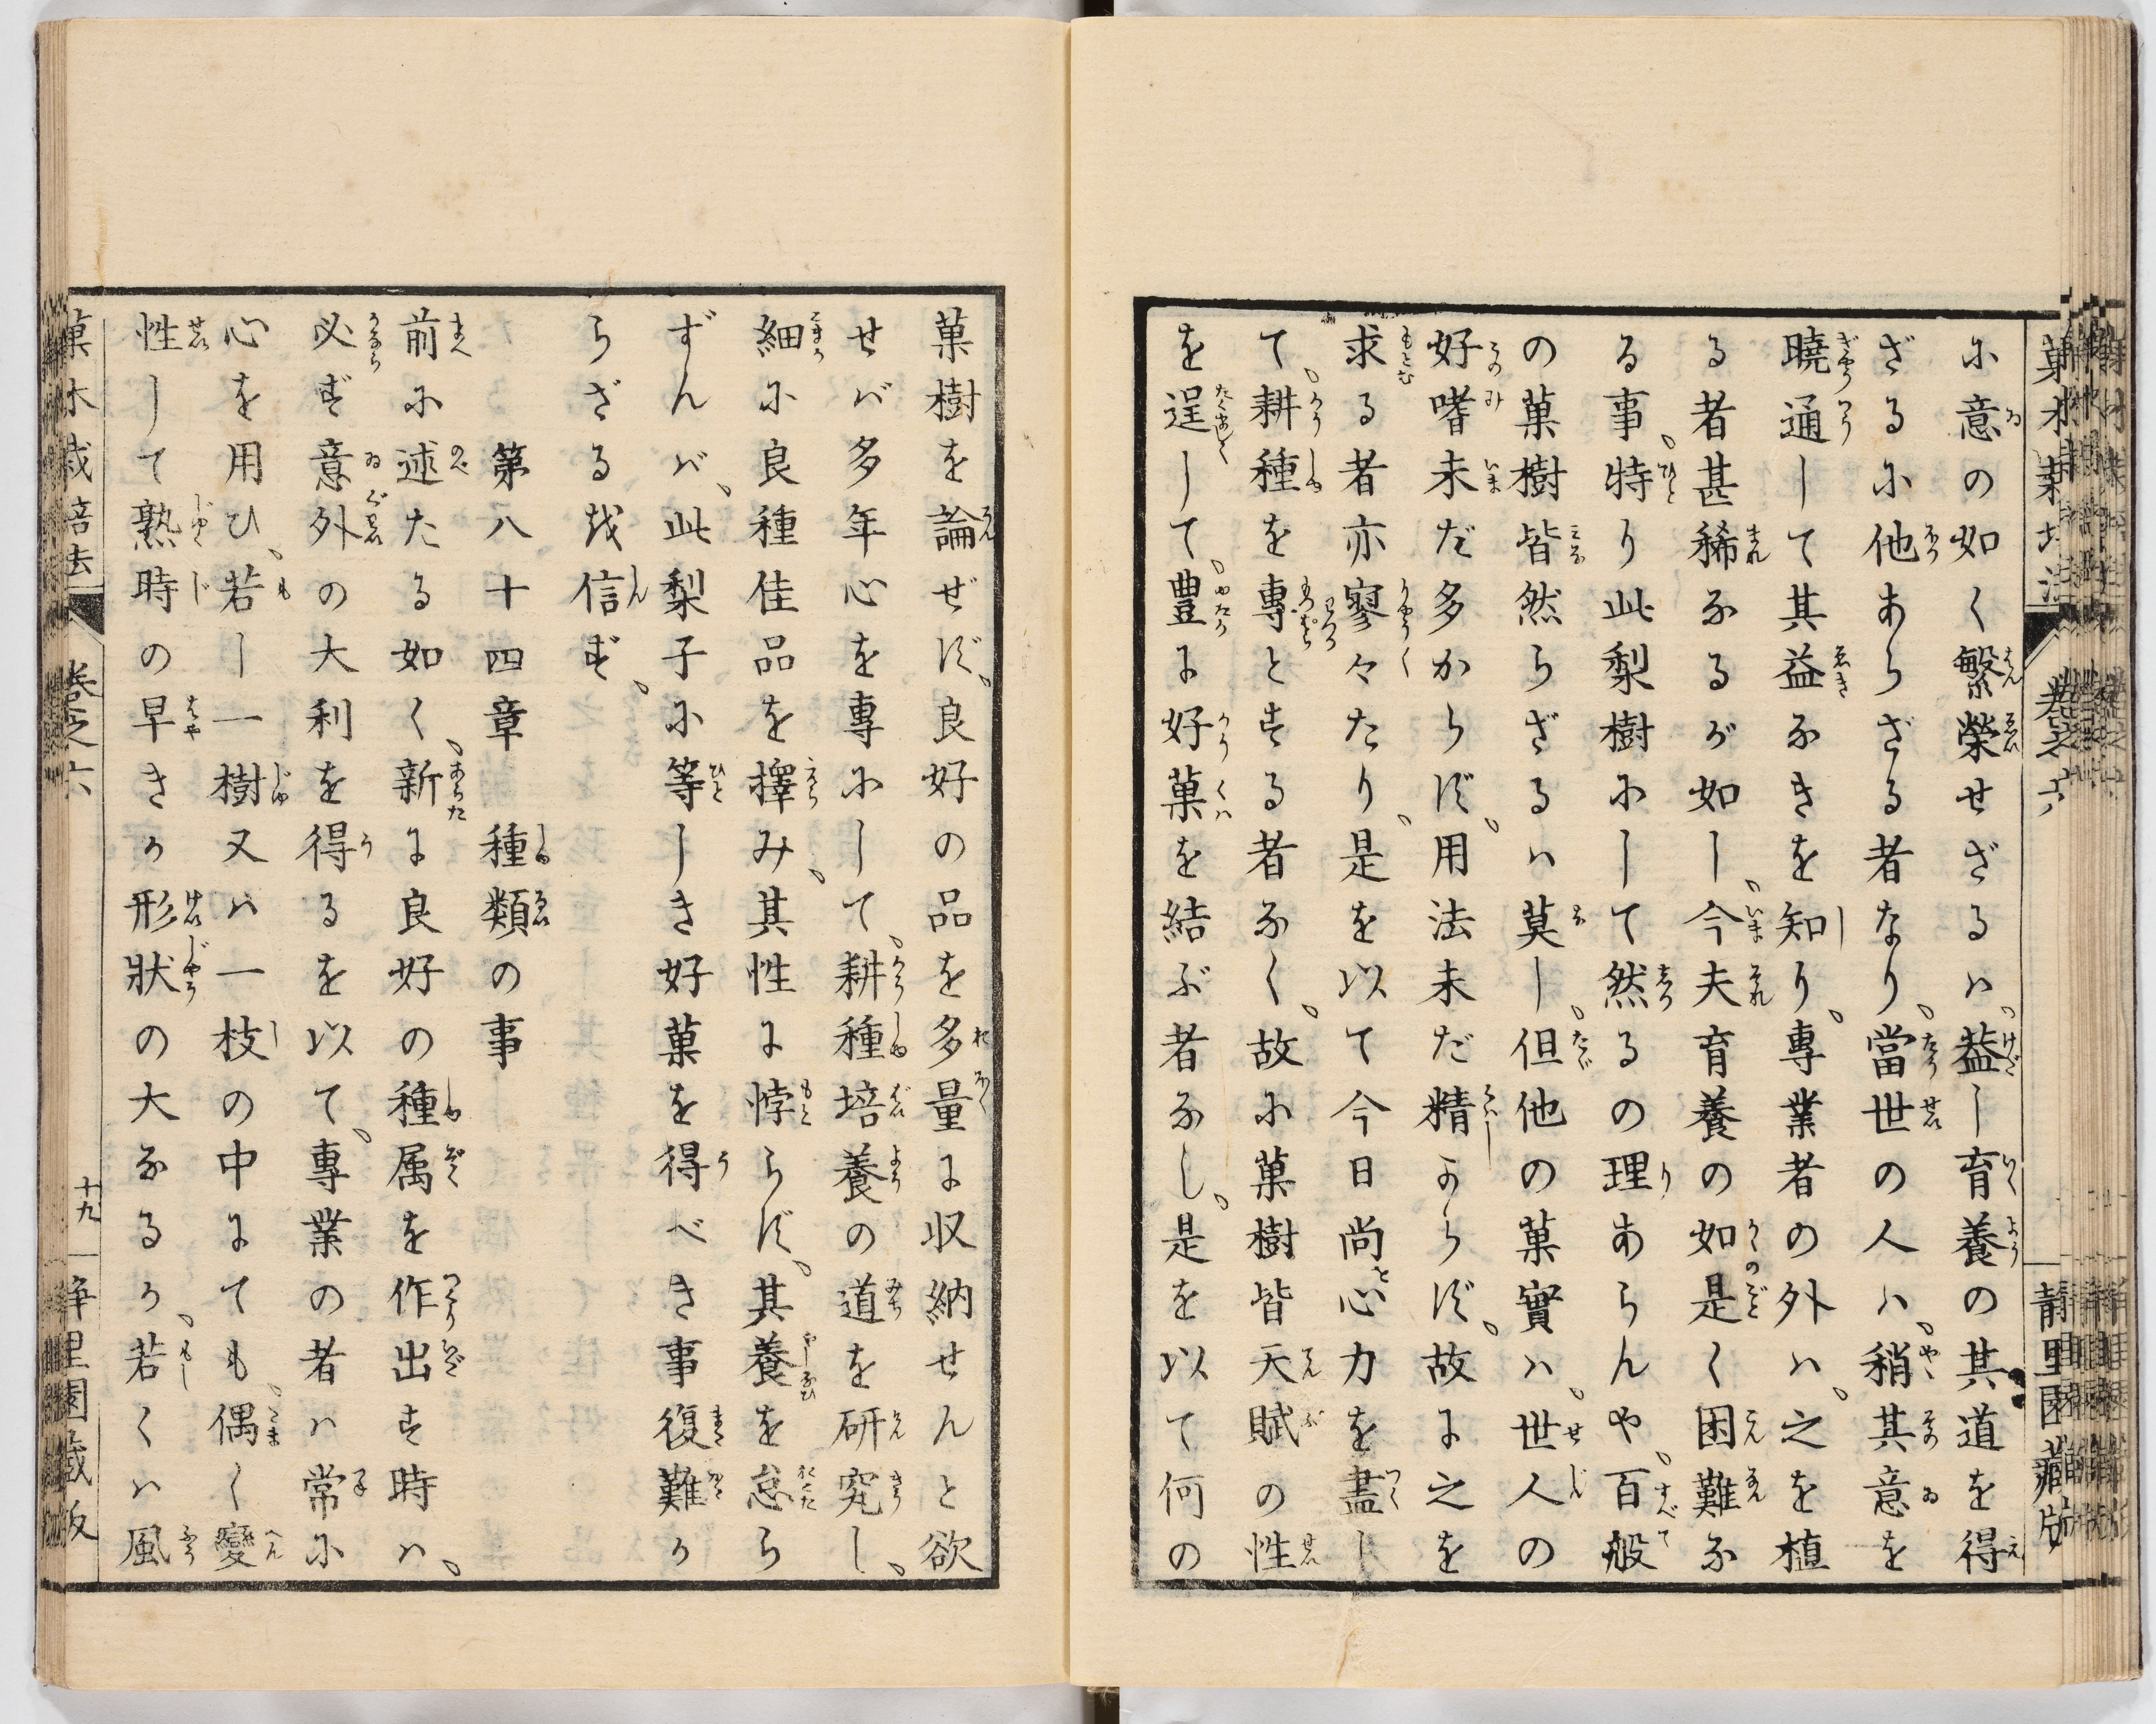 に意の如く繁榮せざるハ、蓋し育養の其道を得
ざるに他あらざる者なり、當世の人ハ、稍其意を
曉通して其益なきを知り、專業者の外ハ、之を植
る者甚稀なるが如し、今夫育養の如是く困難な
る事、特り此梨樹にして然るの理あらんや、百般
の菓樹皆然らざるハ莫し、但他の菓實ハ、世人の
好嗜未だ多からず、用法未だ精しからず、故に之を
求る者亦寥々たり、是を以て今日尚心力を盡し
て、耕種を專とする者なく、故に菓樹皆天賦の性
を逞して、豊に好菓を結ぶ者なし、是を以て何の
菓樹を論ぜず、良好の品を多量に収納せんと欲
せバ多年心を專にして、耕種培養の道を研究し、
細に良種佳品を擇み、其性に悖らず、其養を怠ら
ずんバ、此梨子に等しき好菓を得べき事復難か
らざるを信ず、
第八十四章 種類の事
前に述たる如く、新に良好の種属を作出す時ハ、
必ず意外の大利を得るを以て、專業の者ハ常に
心を用ひ、若し一樹又ハ一枝の中にても、偶く變
性して熟時の早きか形狀の大なるか、若くハ風
菓木栽培法 卷之六 十九 静里園蔵版